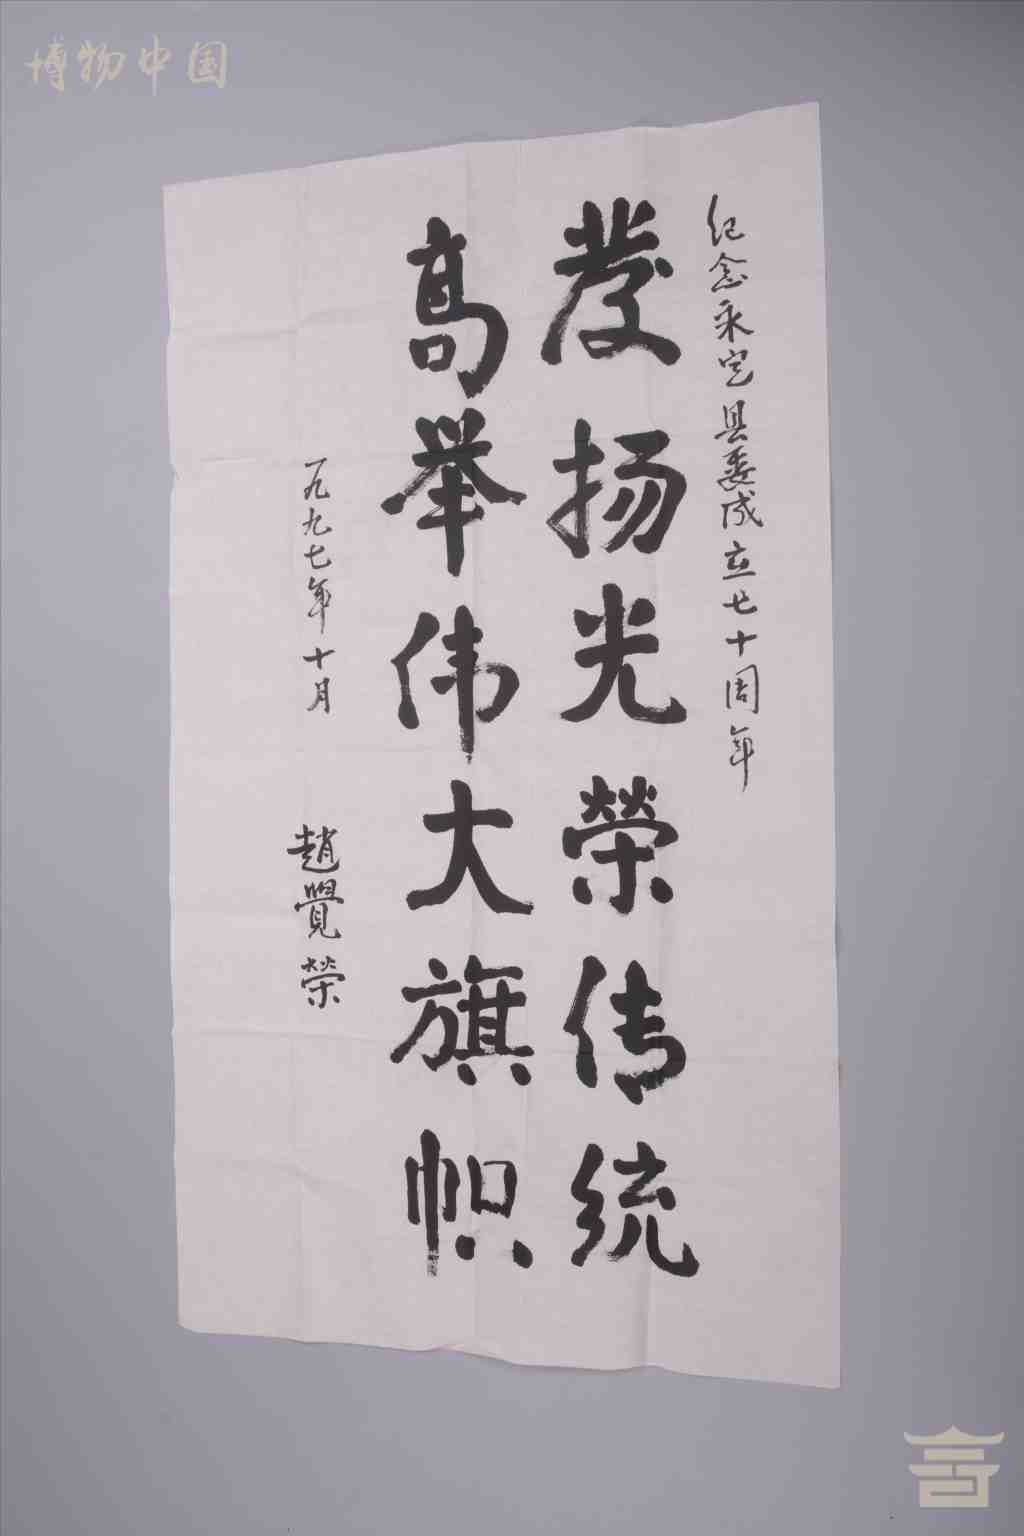 博物中国
纪念永定县委成立七十周年
發扬光榮传统
高举伟大旗帜
一九九七年十月
趙覺榮